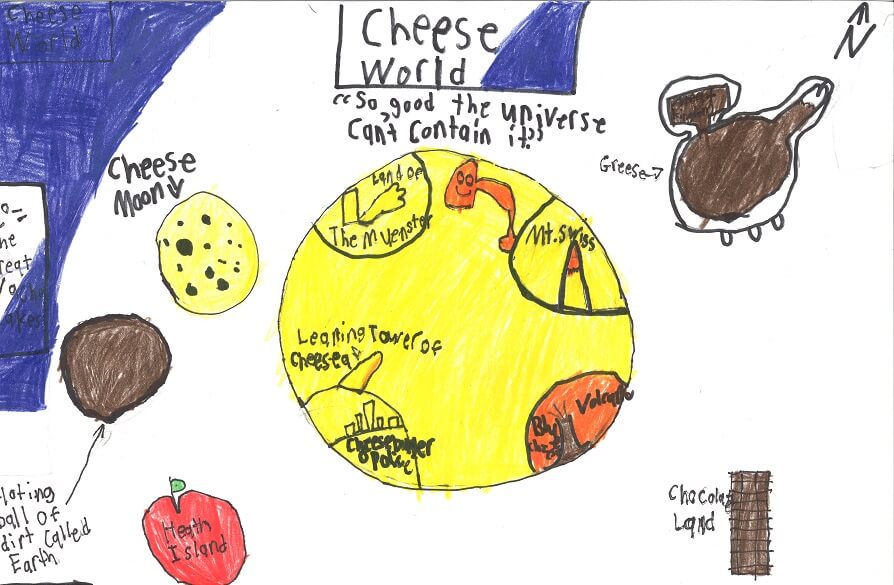 Cheese
World
Cheese
World
"So, good the universe
Can't contain it."
N
Greese→
Cheese
Moon
Land of
The Muenster
Mt. Swiss
he
reat
Leaning Tower of
Cheesea
Volcano
loting
ball of
dirt called
Earth
Heath
Island
Chocolate
Land